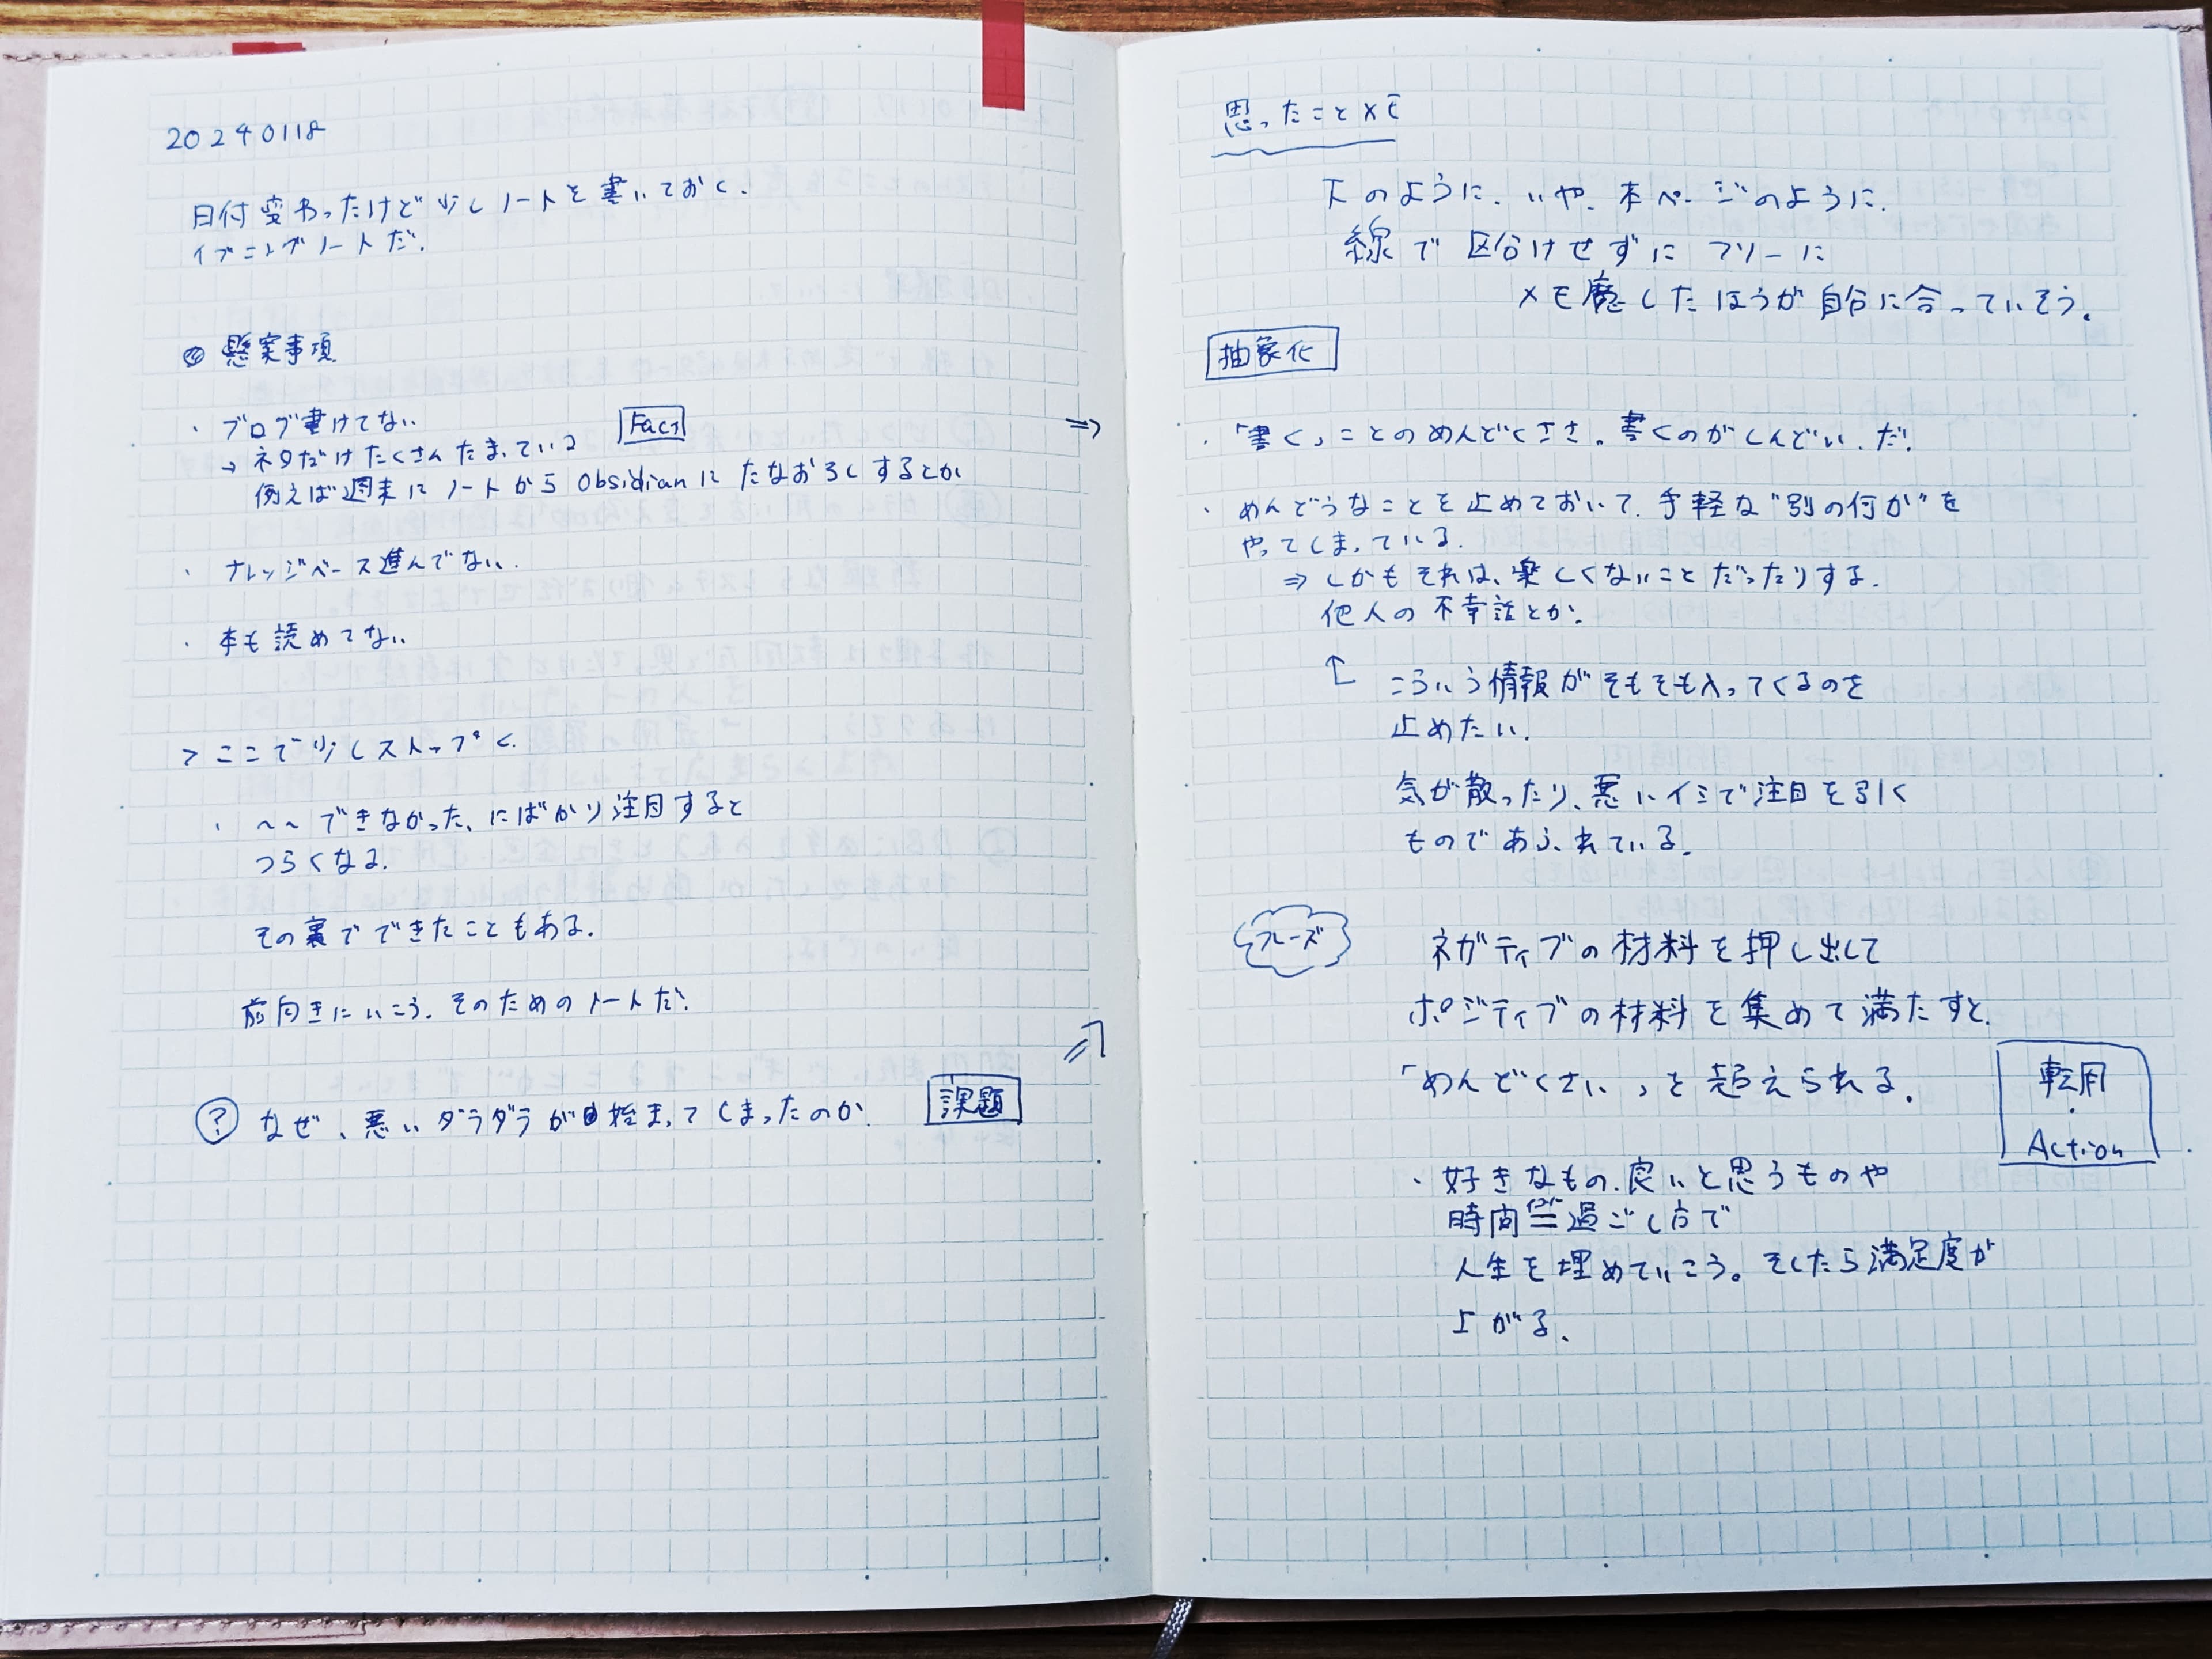 20240118
日付変わったけど少しノートを書いておく.
イブニングノートだ.
◎ 懸案事項
・ブログ書けてない
Fact
→ ネタだけたくさんたまっている
例えば週末にノートから Obsidian にたなおろしするとか
⇒
・ナレッジベース進んでない.
・本も読めてない
> ここで少しストップ <.
・〜〜できなかった、にばかり注目すると
つらくなる.
その裏でできたこともある.
前向きにいこう. そのためのノートだ.
? なぜ、悪いダラダラが始まってしまったのか.
課題
思ったことメモ
下のように、いや、本ページのように.
線で区分けせずにフリーに
メモ魔したほうが自分に合っていそう.
抽象化
・「書く」ことのめんどくささ. 書くのがしんどい、だ!
・めんどうなことを止めておいて. 手軽な"別の何か"を
やってしまっている.
⇒ しかもそれは、楽しくないことだったりする.
他人の不幸話とか.
↑ こういう情報がそもそも入ってくるのを
止めたい.
気が散ったり、悪いイミで注目を引く
ものであふれている.
フレーズ
ネガティブの材料を押し出して
ポジティブの材料を集めて満たすと.
「めんどくさい」を超えられる.
転用
・
Action
・好きなもの、良いと思うものや
時間 過ごし方で
人生を埋めていこう。そしたら満足度が
上がる.